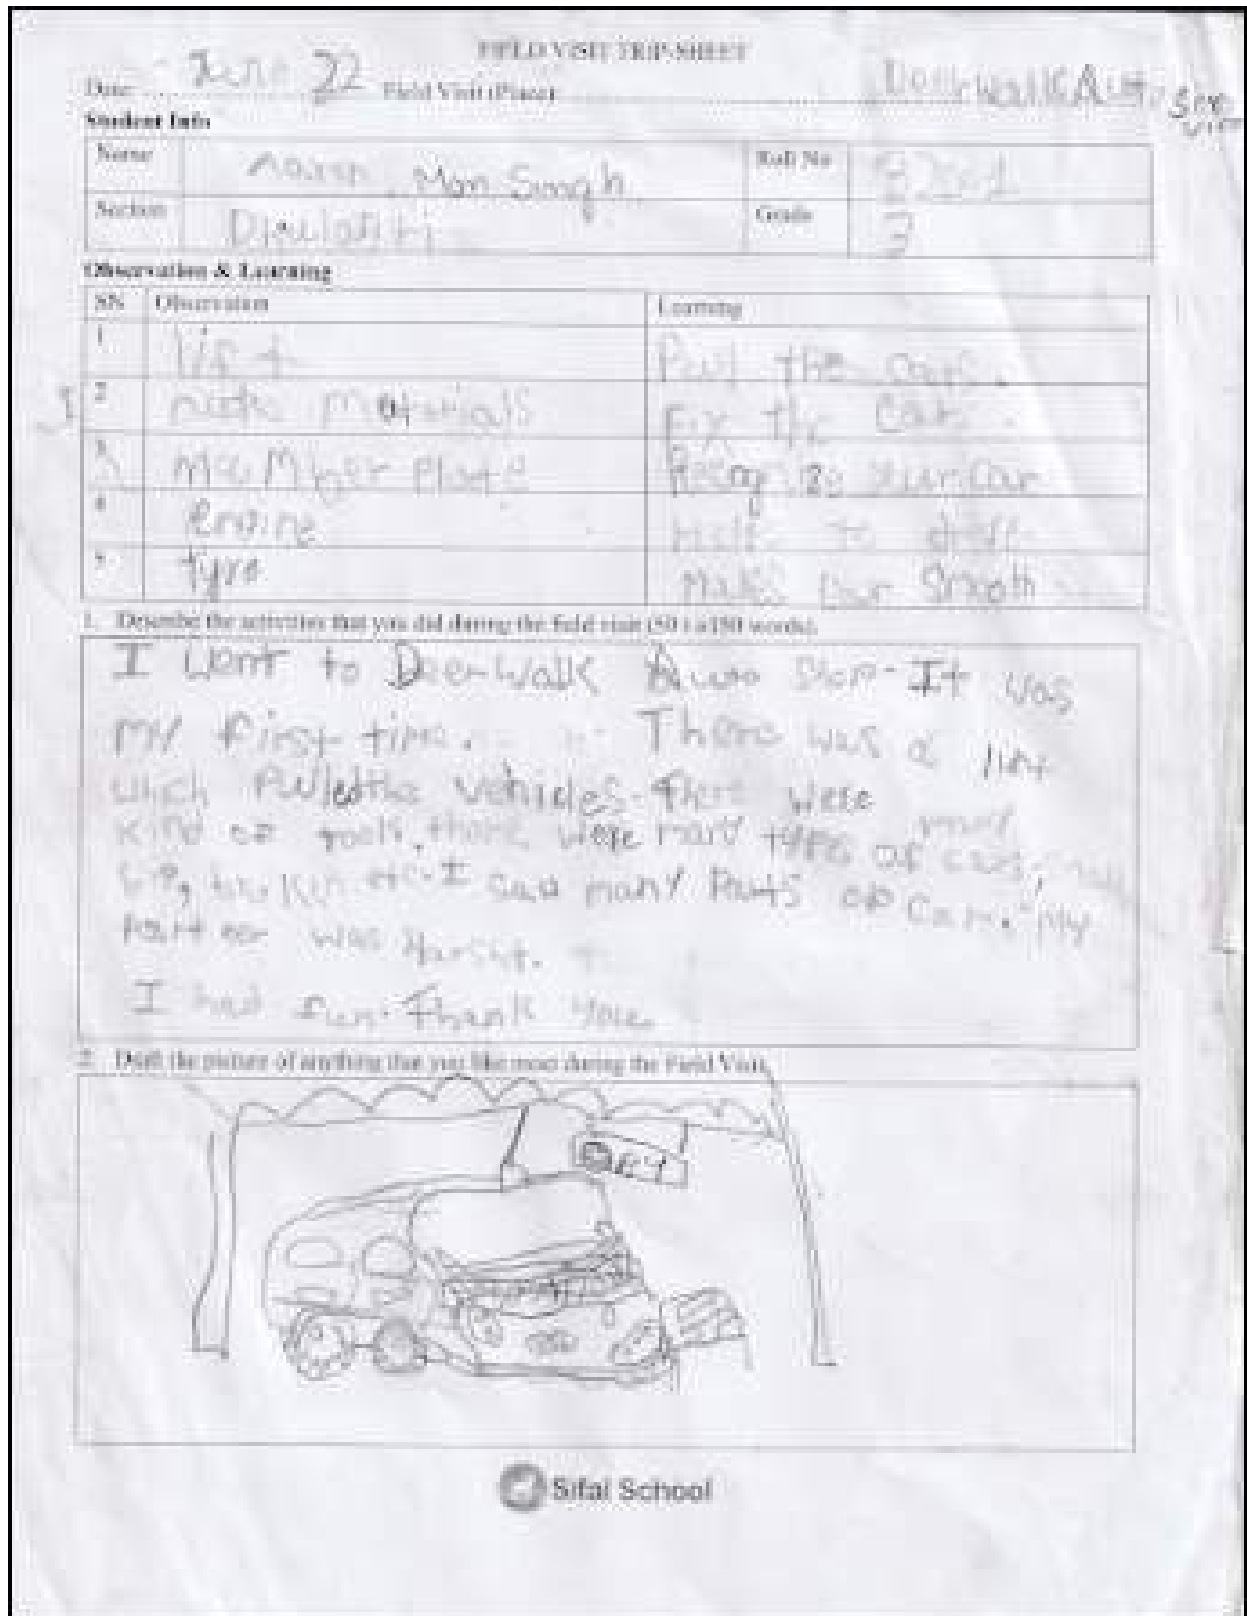 FIELD VISIT TRIP-SHEET
Date June 22 Field Visit (Place) DeerwalkAuto Ser
Student Info
Name Man Singh Roll No
Section Grade 3
Observation & Learning
SN Observation Learning
1 lift Pull the cars.
2 Materials Fix the Cars.
3 Plate Recognize car
4 engine to
5 tyre Makes Our Smooth
1. Describe the activities that you did during the field visit (50 to 150 words).
I went to DeerWalk It was
my first time. There was a
which Pulled the vehicles. There were
many
kind of tools, there were many types of cars,
big, broken etc. I saw many Parts of Car. My
was
I had fun. Thank you.
2. Draft the picture of anything that you like most during the Field Visit.
Sifal School